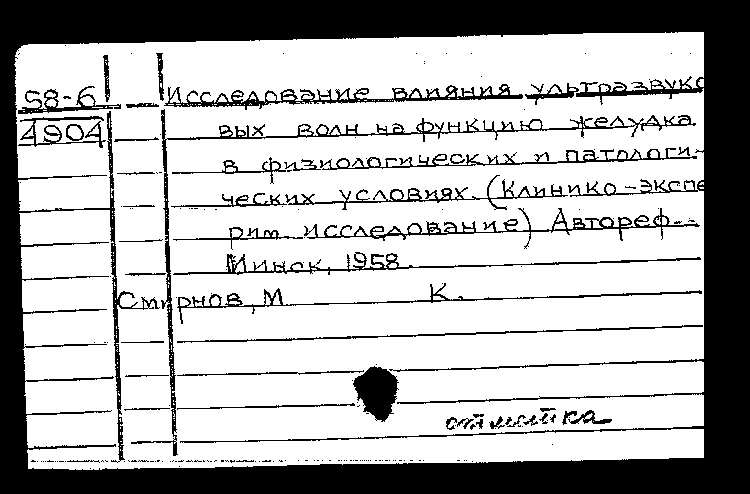 58-6 Исследование влияния ультразвуко
4904 вых волн на функцию желудка
в физиологических и патологи-
ческих условиях. (Клинико-экспе
рим. исследование) Автореф.-
Минск, 1958.
Смирнов, М К.
отметка